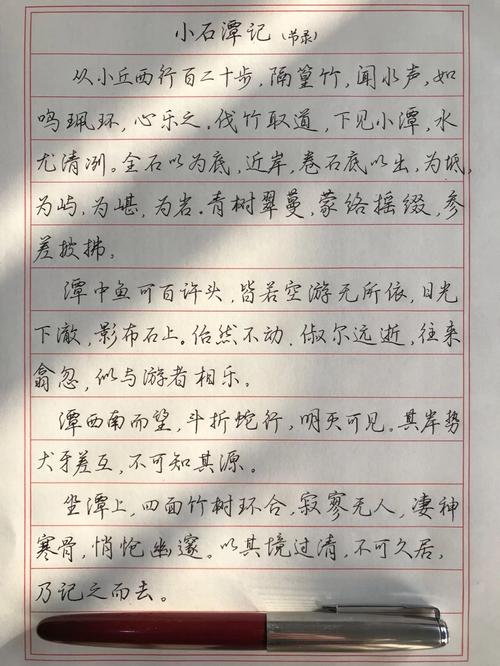 小石潭记（节录）
从小丘西行百二十步，隔篁竹，闻水声，如
鸣珮环，心乐之。伐竹取道，下见小潭，水
尤清冽。全石以为底，近岸，卷石底以出，为坻，
为屿，为嵁，为岩。青树翠蔓，蒙络摇缀，参
差披拂。
潭中鱼可百许头，皆若空游无所依，日光
下澈，影布石上。佁然不动，俶尔远逝，往来
翕忽，似与游者相乐。
潭西南而望，斗折蛇行，明灭可见。其岸势
犬牙差互，不可知其源。
坐潭上，四面竹树环合，寂寥无人，凄神
寒骨，悄怆幽邃。以其境过清，不可久居，
乃记之而去。